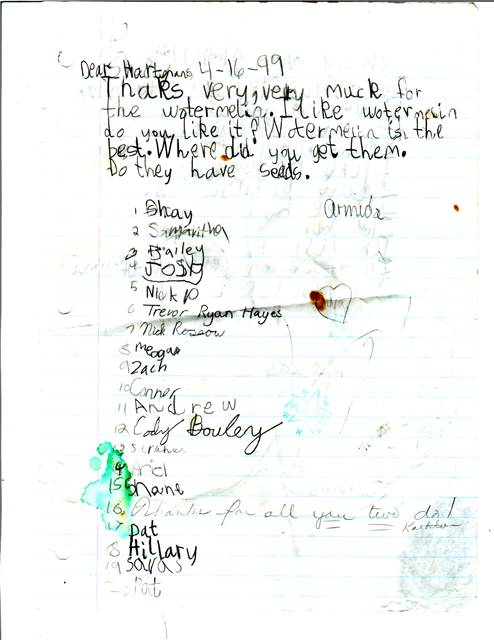 Dear Hartgnans 4-16-99
Thaks very, very muck for
the wotermelin. I like wotermelin
do you like it? Wotermelin is the
best. Where did you get them.
Do they have seeds.
Armida
1 Shay
2 Samantha
3 Bailey
4 JOSH
5 Nick P
6 Trevor Ryan Hayes
7 Nick Rossow
8 meagan
9 Zach
10 Connor
11 Andrew
12 Cody Bouley
13
14
15 Shane
16 Thanks for all you two do!
17 Pat
18 Hillary
19 saras